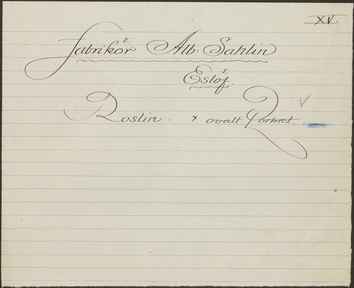 XV.
Fabrikör Alb. Sahlin
Eslöf
Roslin × ovalt Format